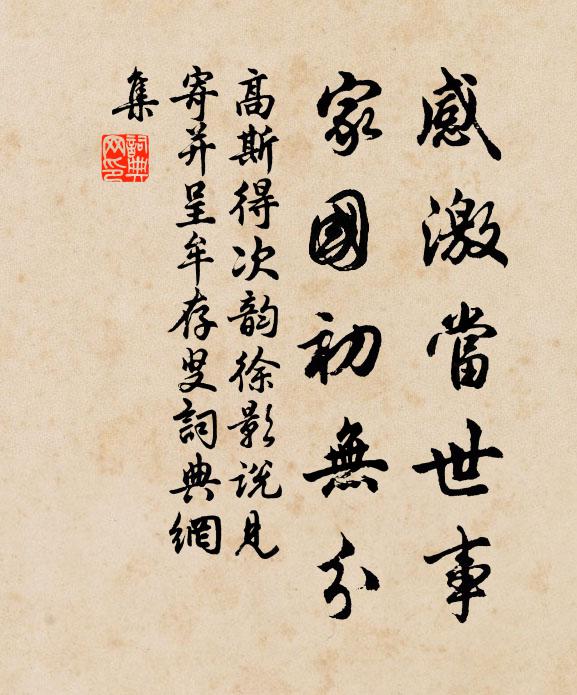 感激當世事
家國初無分
高斯得次韵徐影说見
寄并呈牟存叟詞典網
集
詞典网印